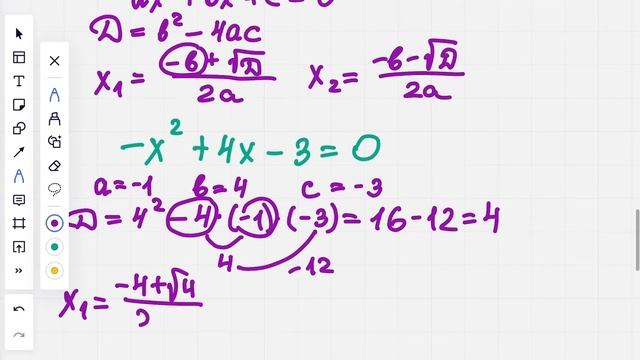 ax² + bx + c = 0
D = b² - 4ac
x₁ = (-b + √D) / 2a x₂ = (-b - √D) / 2a
-x² + 4x - 3 = 0
a = -1 b = 4 c = -3
D = 4² - 4 · (-1) · (-3) = 16 - 12 = 4
4 -12
x₁ = (-4 + √4) / 2